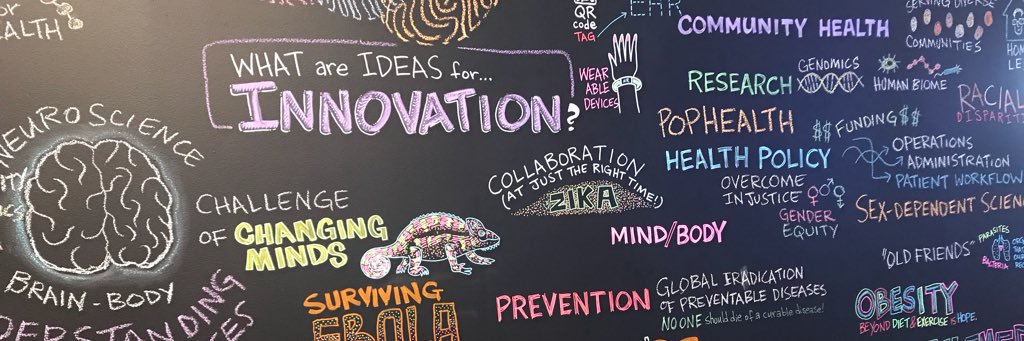 HEALTH
QR
code
TAG
EHR
COMMUNITY HEALTH
SERVING DIVERSE
COMMUNITIES
WHAT are IDEAS for...
INNOVATION?
WEAR
ABLE
DEVICES
RESEARCH
GENOMICS
HUMAN BIOME
RACIAL
POPHEALTH
$$ FUNDING $$
HEALTH POLICY
OPERATIONS
ADMINISTRATION
PATIENT WORKFLOW
NEUROSCIENCE
BRAIN-BODY
CHALLENGE
OF CHANGING
MINDS
COLLABORATION
(AT JUST THE RIGHT TIME!)
ZIKA
OVERCOME
INJUSTICE
GENDER
EQUITY
SEX-DEPENDENT
MIND/BODY
"OLD FRIENDS"
PARASITES
BACTERIA
SURVIVING
EBOLA
PREVENTION
GLOBAL ERADICATION
OF PREVENTABLE DISEASES
NO ONE should die of a curable disease!
OBESITY
BEYOND DIET & EXERCISE is HOPE.